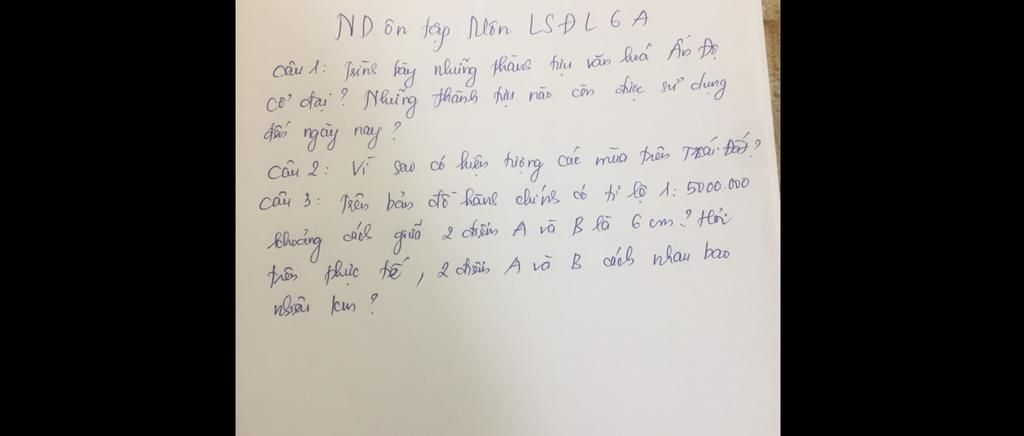 ND ôn tập Môn LSĐL 6A
Câu 1: Trình bày những thành tựu văn hoá Ấn Độ
cổ đại? Những thành tựu nào còn được sử dụng
đến ngày nay?
Câu 2: Vì sao có hiện tượng các mùa trên Trái Đất?
Câu 3: Trên bản đồ hành chính có tỉ lệ 1: 5000.000
khoảng cách giữa 2 điểm A và B là 6 cm? Hỏi
trên thực tế, 2 điểm A và B cách nhau bao
nhiêu km?